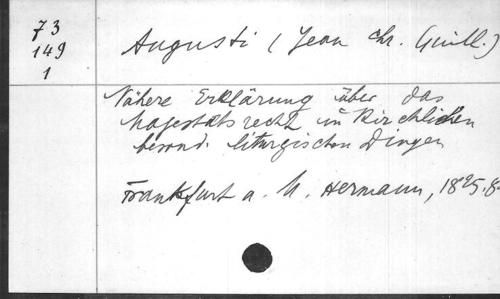 73
149
1
Augusti (Jean Chr. Guill.)
Nähere Erklärung über das
Majestätsrecht in kirchlichen
besond. liturgischen Dingen
Frankfurt a. M. Hermann, 1825. 8